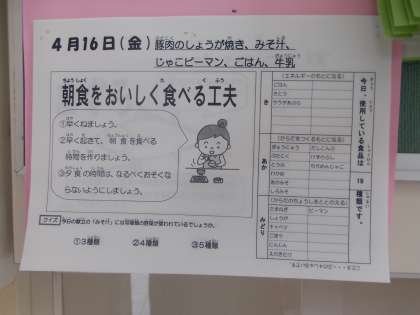 ４月１６日（金） 豚肉のしょうが焼き、みそ汁、
じゃこピーマン、ごはん、牛乳
朝食をおいしく食べる工夫
①早くねましょう。
②早く起きて、朝食を食べる
時間を作りましょう。
③夕食の時間は、なるべくおそくな
らないようにしましょう。
クイズ 今日の献立の「みそ汁」には何種類の野菜が使われているでしょうか。
①３種類 ②４種類 ③５種類
今日、使用している食品は 18 種類です。
き
（エネルギーのもとになる）
ごはん
さとう
あか
（からだをつくるもとになる）
ぎゅうにゅう
ぶたにく
とうふ
わかめ
あかみそ
しろみそ
みどり
（からだのちょうしをととのえる）
たまねぎ ピーマン
しょうが
キャベツ
ごぼう
にんじん
えのきたけ